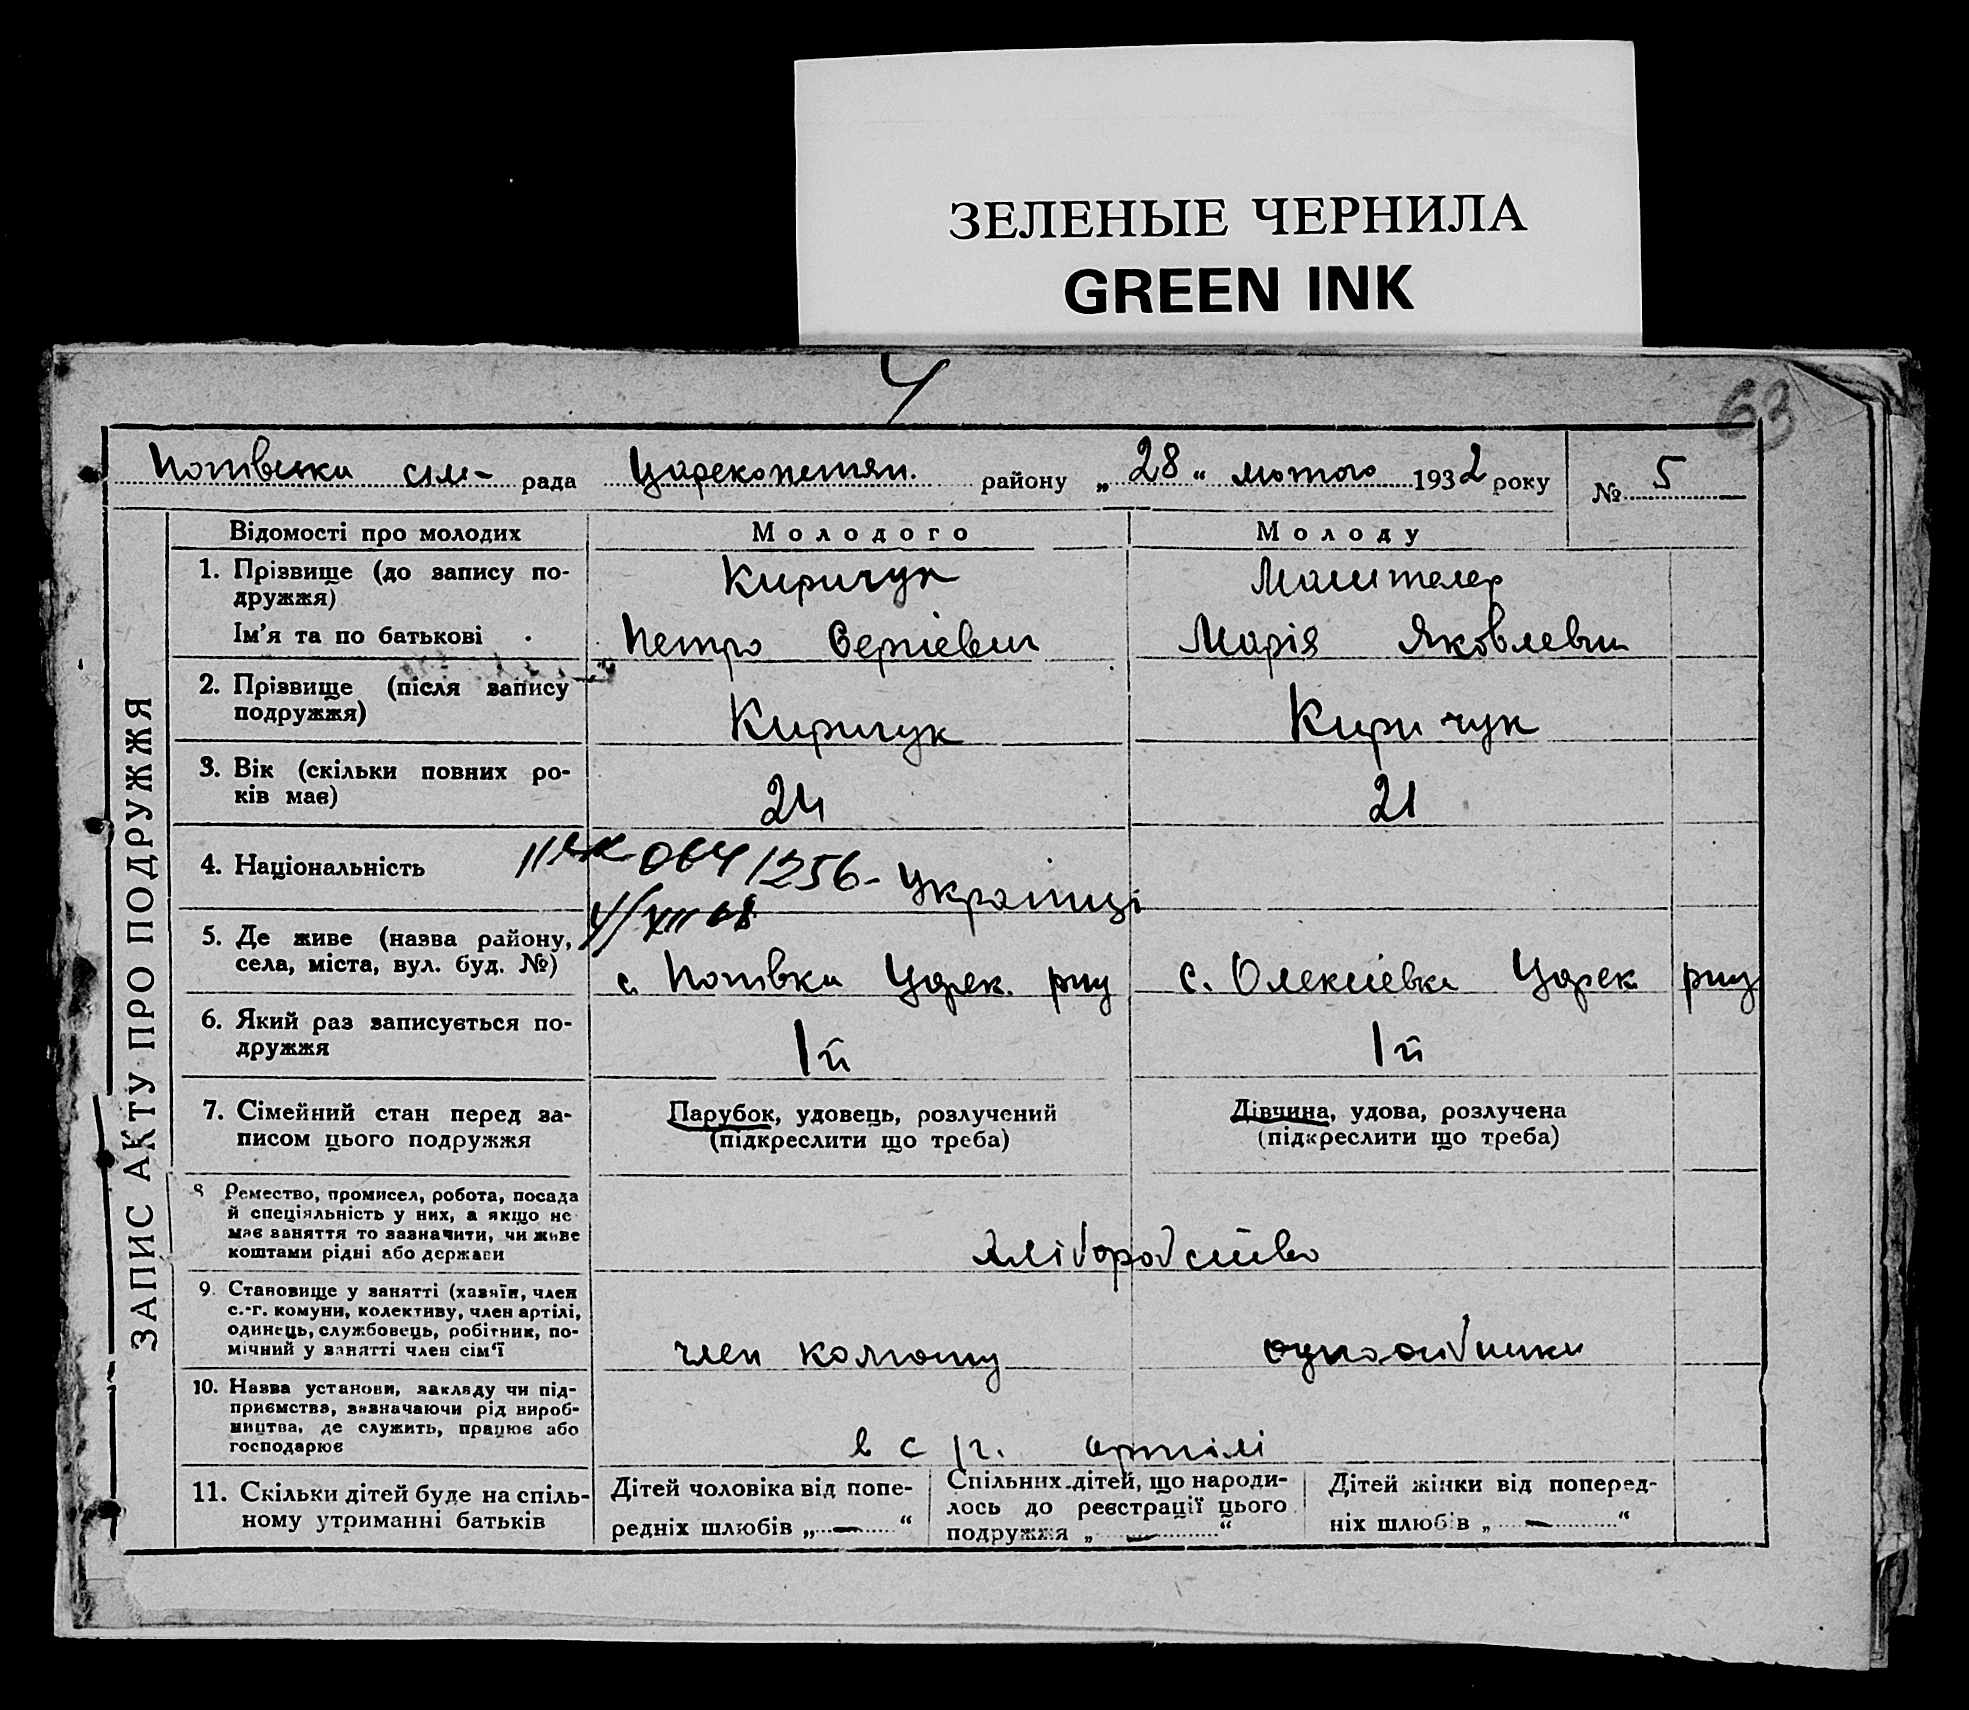 ЗЕЛЕНЫЕ ЧЕРНИЛА
GREEN INK
63
сіл- рада района „28“ лютого 1932 року № 5
ЗАПИС АКТУ ПРО ПОДРУЖЖЯ
Відомості про молодих
Молодого
Молоду
1. Прізвище (до запису по-
дружжя)
Киричук
Ім'я та по батькові
Петро Сергієвич
Марія Яковлевн
2. Прізвище (після запису
подружжя)
Киричук
Киричук
3. Вік (скільки повних ро-
ків має)
24
21
4. Національність
064256 - Українці
5. Де живе (назва району,
села, міста, вул. буд. №)
с. Потівки Царек. рну
с. Олексіевка Царек рну
6. Який раз записується по-
дружжя
1й
1й
7. Сімейний стан перед за-
писом цього подружжя
Парубок, удовець, розлучений
(підкреслити що треба)
Дівчина, удова, розлучена
(підкреслити що треба)
8 Ремество, промисел, робота, посада
й спеціяльність у них, а якщо не
має заняття то зазначити, чи живе
коштами рідні або держави
хліборобство
9. Становище у занятті (хазяїн, член
с.-г. комуни, колективу, член артілі,
одинець, службовець, робітник, по-
мічний у занятті член сім'ї
член колгоспу
одноосібники
10. Назва установи, закладу чи під-
приємства, зазначаючи рід вироб-
ництва, де служить, працює або
господарює
в с/г. артілі
11. Скільки дітей буде на спіль-
ному утриманні батьків
Дітей чоловіка від попе-
редніх шлюбів „ — “
Спільних дітей, що народи-
лось до реєстрації цього
подружжя „ — “
Дітей жінки від поперед-
ніх шлюбів „ — “